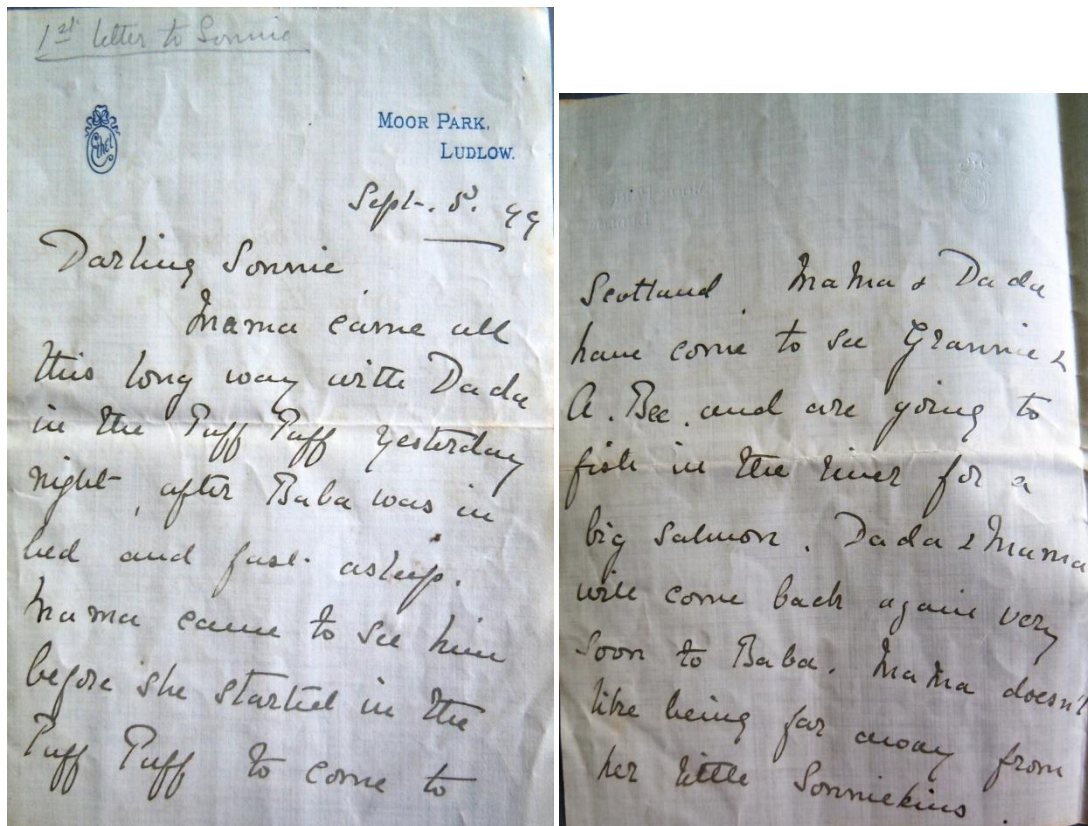 1st letter to Sonnie
Ethel
MOOR PARK,
LUDLOW.
Sept. 5. 99
Darling Sonnie
Mama came all
this long way with Dada
in the Puff Puff yesterday
night, after Baba was in
bed and fast asleep.
Mama came to see him
before she started in the
Puff Puff to come to
Scotland. Mama & Dada
have come to see Grannie &
A. Bee and are going to
fish in the river for a
big salmon. Dada & Mama
will come back again very
soon to Baba. Mama doesn't
like being far away from
her little Sonniekins.